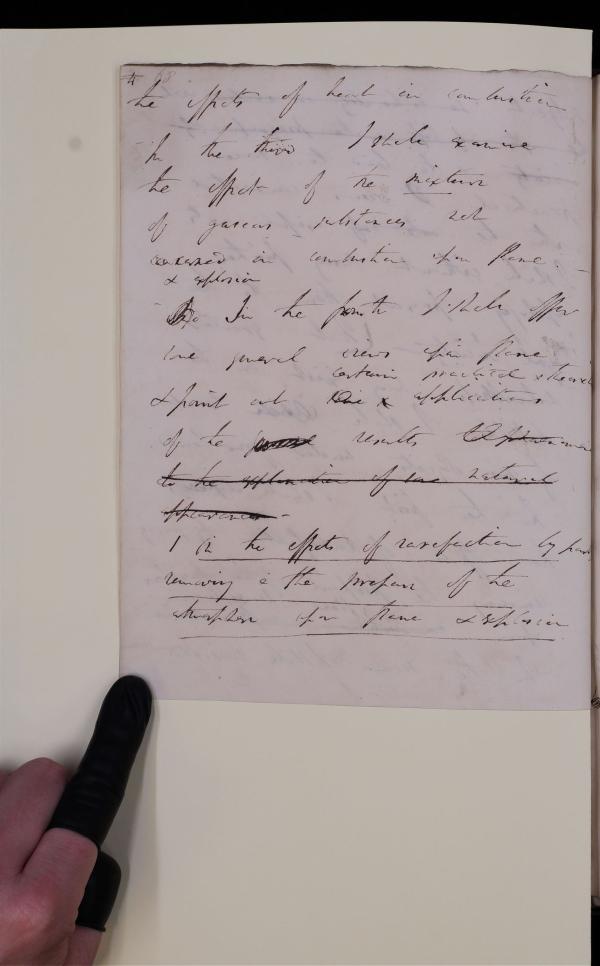 4 68
the effects of heat in combustion
In the third I shall examine
the effect of the mixture
of gaseous substances not
concerned in combustion upon flame.
& explosion
In the fourth I shall offer
some general views upon flame
certain practical & theoretical
& point out applications
of the results
to the explanation of some natural
appearances -
1 in the effects of rarefaction by partly
removing the pressure of the
atmosphere upon flame & explosion